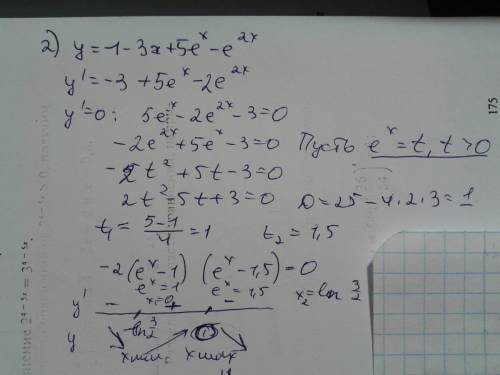 2) y = -1 - 3x + 5e^x - e^{2x}
y' = -3 + 5e^x - 2e^{2x}
y' = 0: 5e^x - 2e^{2x} - 3 = 0
-2e^{2x} + 5e^x - 3 = 0 Пусть e^x = t, t > 0
-2t² + 5t - 3 = 0
2t² - 5t + 3 = 0 D = 25 - 4·2·3 = 1
t₁ = (5-1)/4 = 1 t₂ = 1,5
-2(e^x - 1)(e^x - 1,5) = 0
e^x = 1 e^x = 1,5
x₁ = 0 x₂ = ln 3/2
y' - + -
ln 3/2
y ↘ ↗ ↘
x min x max
175